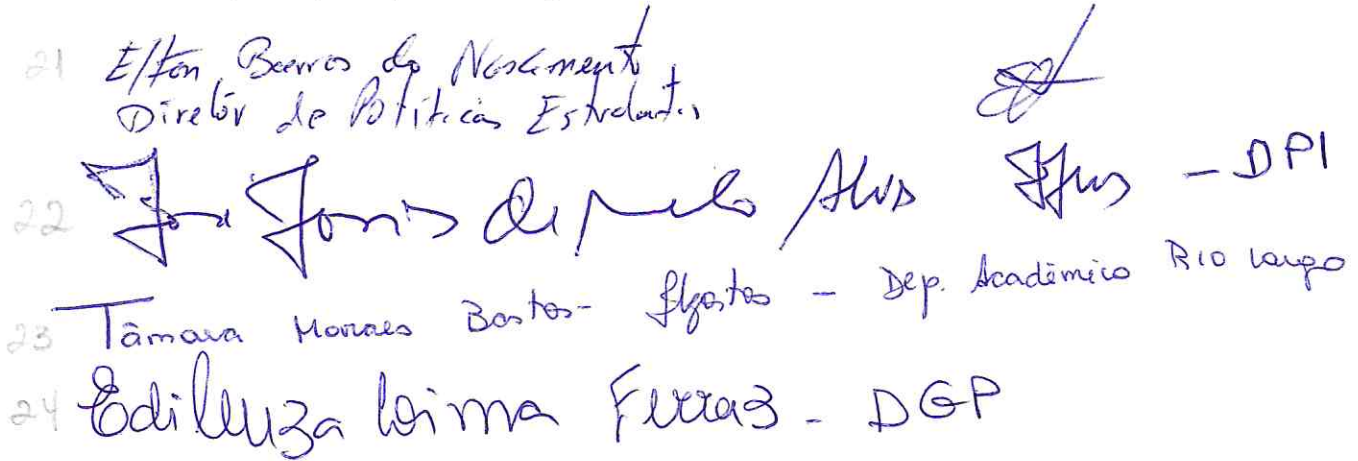 21 Elton Barros do Nascimento
Diretor de Políticas Estudantis
22 de Melo Alves - DPI
23 Tâmara Moraes Bastos - - Dep. Acadêmico Rio Largo
24 Edileuza Lima Ferraz - DGP